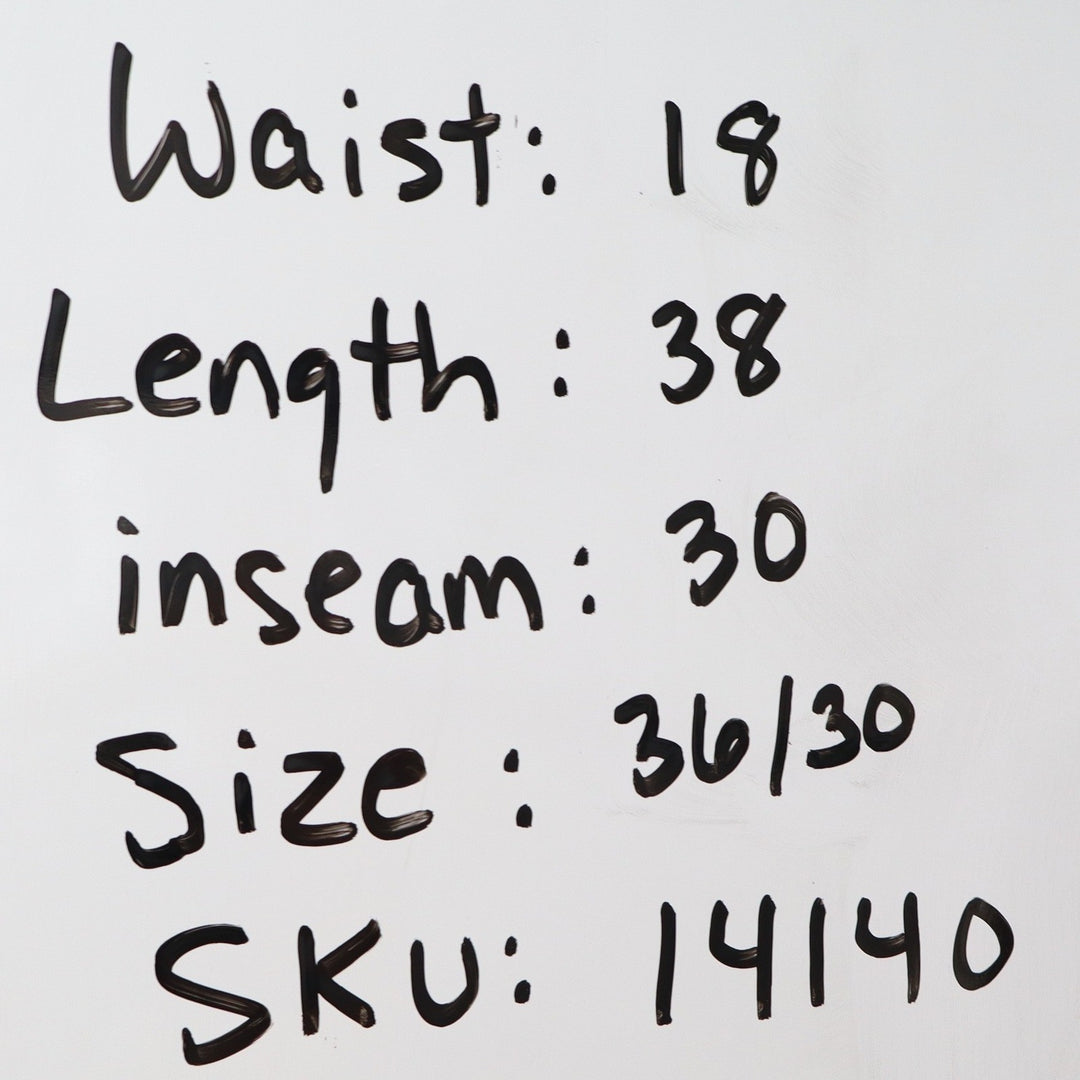 Waist: 18
Length: 38
inseam: 30
Size: 36/30
SKU: 14140